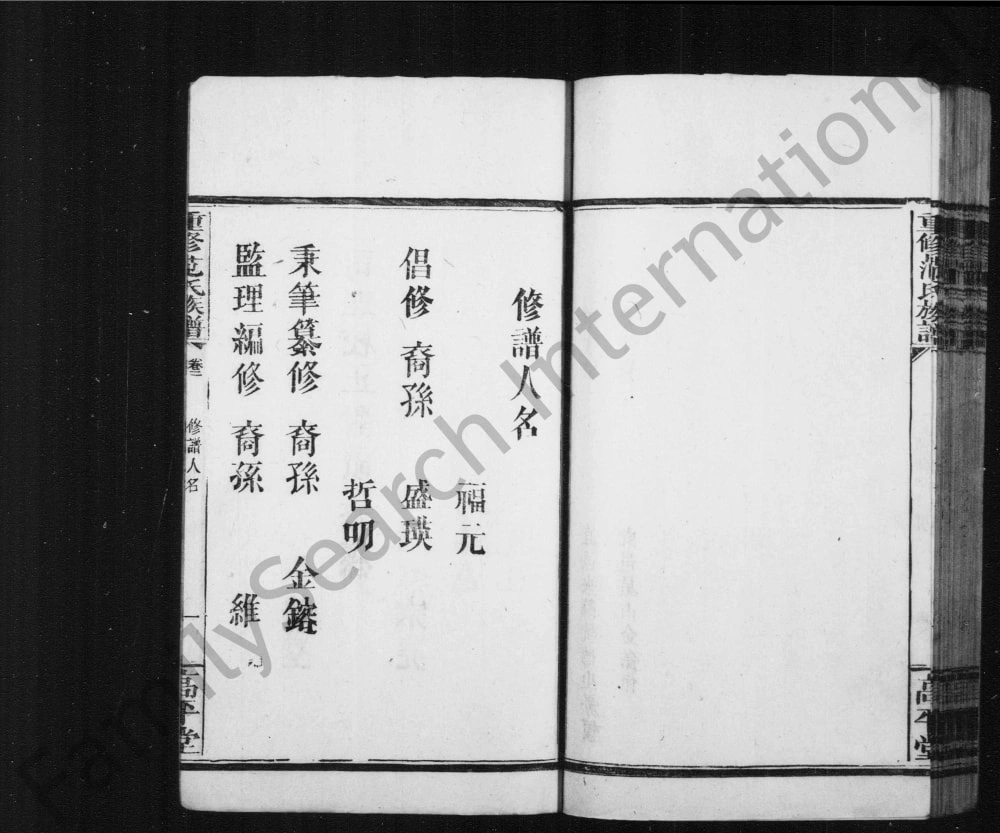 重修范氏族譜
高平堂
修譜人名
福元
倡修 裔孫 盛瑛
哲明
秉筆纂修 裔孫 金鎔
監理編修 裔孫 維
重修范氏族譜 卷二 修譜人名 一 高平堂
FamilySearch International